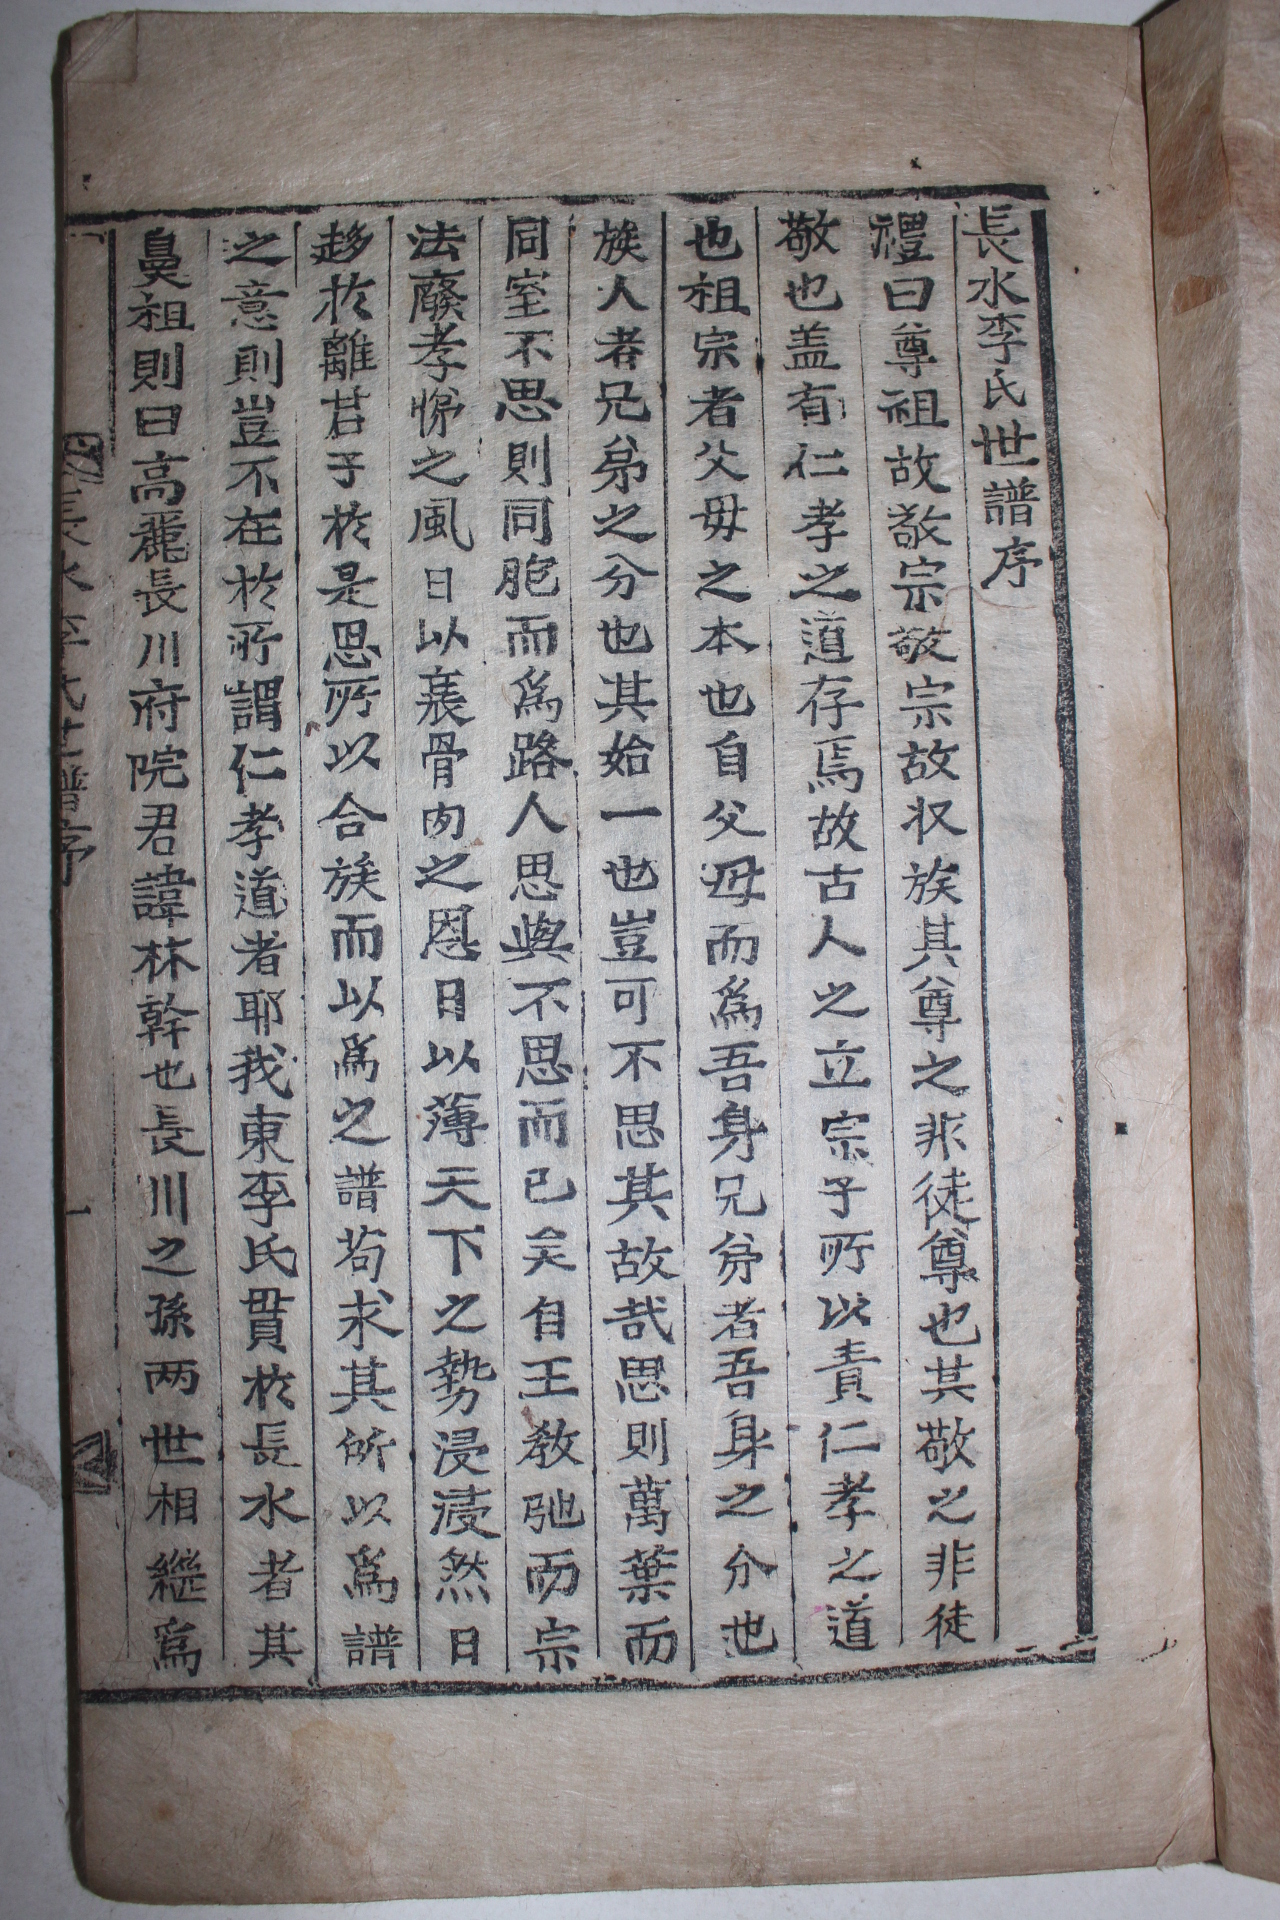 長水李氏世譜序
禮曰尊祖故敬宗敬宗故収族其尊之非徒尊也其敬之非徒
敬也盖有仁孝之道存焉故古人之立宗子所以責仁孝之道
也祖宗者父母之本也自父母而爲吾身兄弟者吾身之分也
族人者兄弟之分也其始一也豈可不思其故哉思則萬葉而
同室不思則同胞而爲路人思與不思而已矣自王敎弛而宗
法廢孝悌之風日以衰骨肉之恩日以薄天下之勢浸浸然日
趍於離君子於是思所以合族而以爲之譜苟求其所以爲譜
之意則豈不在於所謂仁孝道者耶我東李氏貫於長水者其
鼻祖則曰高麗長川府院君諱林幹也長川之孫两世相繼爲
長水李氏世譜序 一